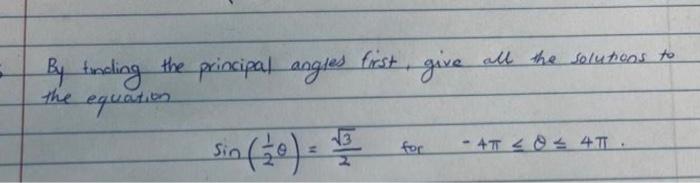 By finding the principal angles first, give all the solutions to
the equation
sin(½θ) = √3/2 for -4π ≤ θ ≤ 4π.